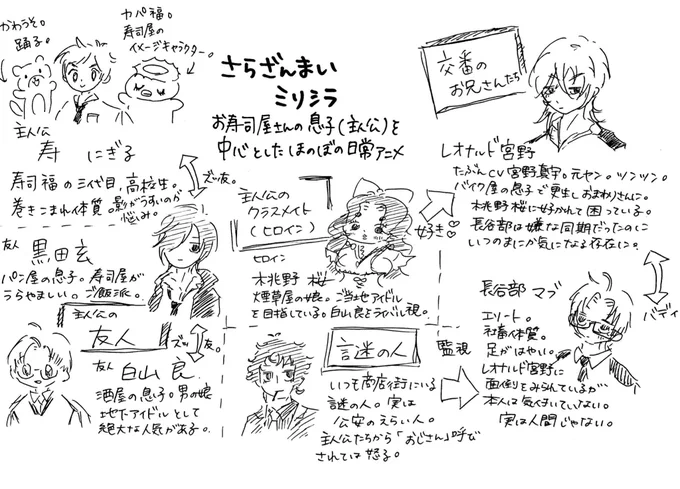 かわうそ。
踊る。
カパ福。
寿司屋の
イメージキャラクター。
さらざんまい
ミリシラ
お寿司屋さんの息子(主人公)を
中心としたほのぼの日常アニメ
交番の
お兄さんたち
主人公
寿 にぎる
寿司福の三代目,高校生。
巻きこまれ体質。影がうすいのが
悩み。
ズッ友。
友人
黒田玄
パン屋の息子。寿司屋が
うらやましい。ご飯派。
主人公の
友人
ズッ友。
友人
白山 良
酒屋の息子。男の娘
地下アイドルとして
絶大な人気がある。
主人公の
クラスメイト
(ヒロイン)
好き♡
ヒロイン
木桃野 桜
煙草屋の娘。ご当地アイドル
を目指している。白山良とライバル視。
謎の人
いつも商店街にいる
謎の人。実は
公安のえらい人。
主人公たちから「おじさん」呼び
されては怒る。
監視
レオナルド宮野
たぶんCV宮野真守。元ヤン。ツンツン。
バイク屋の息子で更生しおまわりさんに。
木桃野桜に好かれて困っている。
長谷部は嫌な同期だったのに
いつのまにか気になる存在に。
バディ
長谷部 マブ
エリート。
社畜体質。
足がはやい。
レオナルド宮野に
面倒をみられているが
本人は気付いていない。
実は人間じゃない。